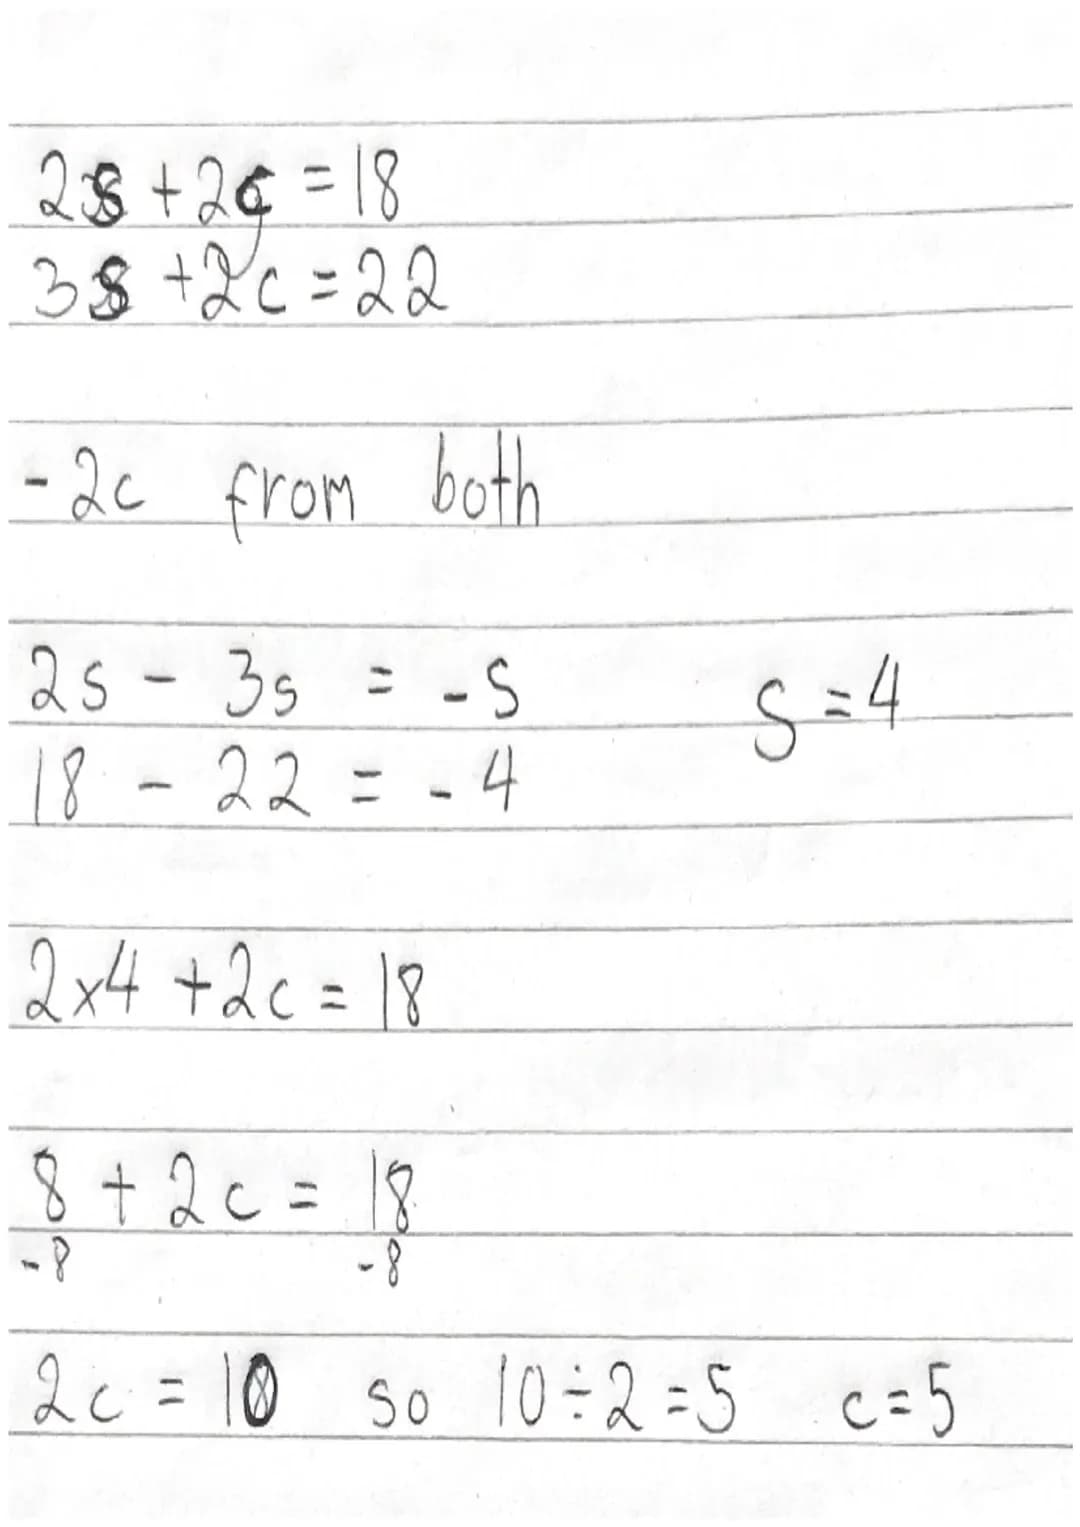 2s + 2c = 18
3s + 2c = 22
- 2c from both
2s - 3s = -s
s = 4
18 - 22 = -4
2x4 + 2c = 18
8 + 2c = 18
-8 -8
2c = 10 so 10 ÷ 2 = 5 c = 5